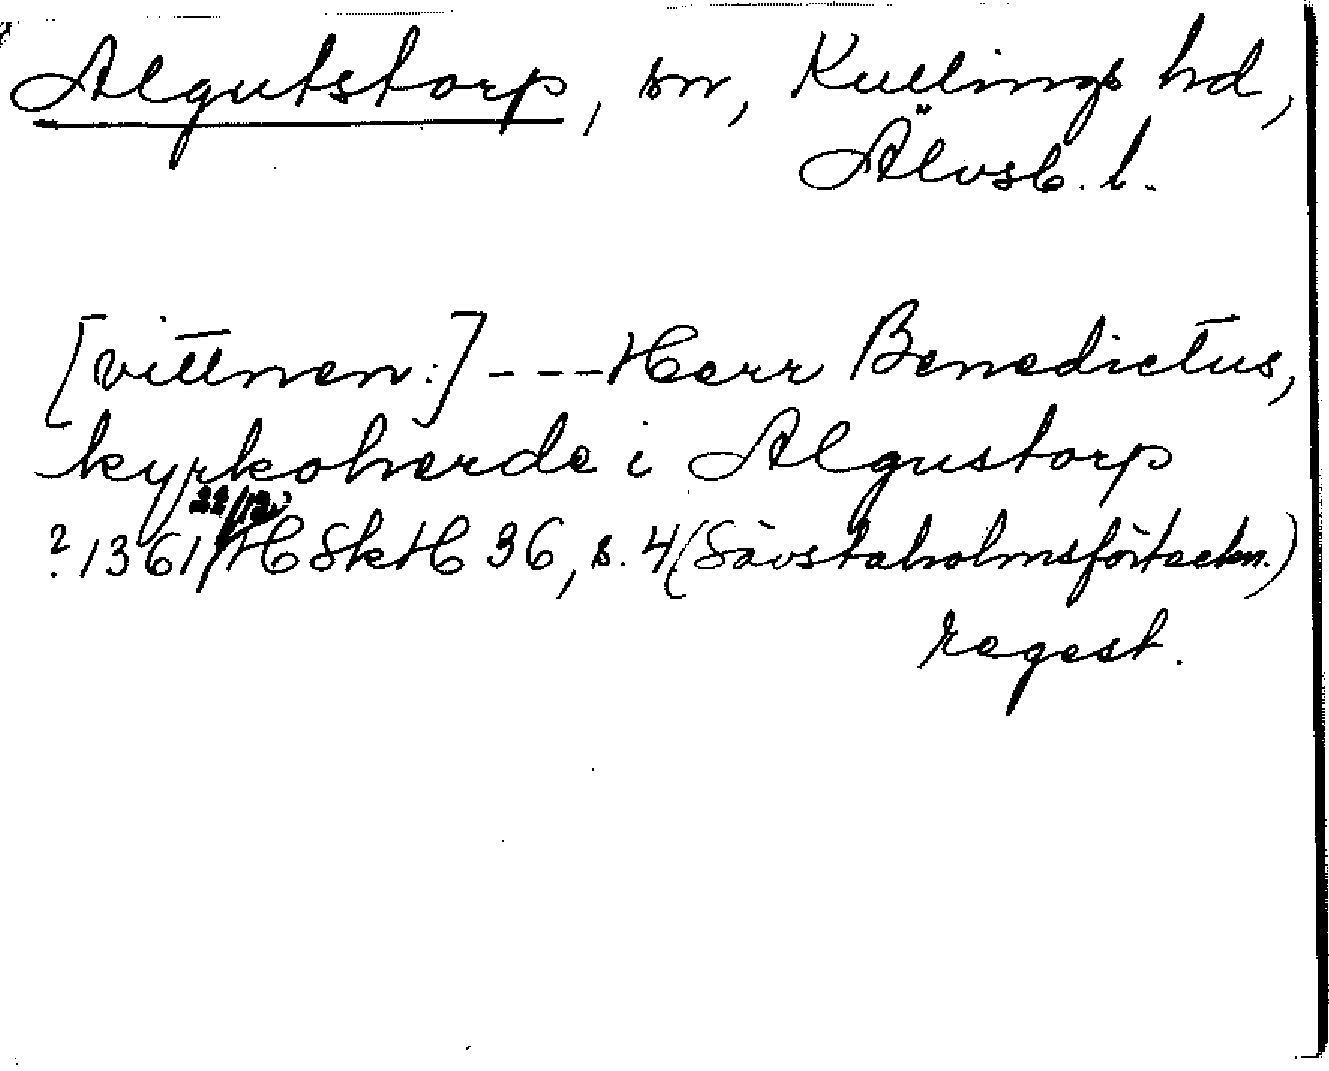 Algutstorp, sn, Kullings hd,
Älvsb. l.
[vittnen:] --- Herr Benedictus,
kyrkoherde i Algustorp
22/12
? 1361 HSkH 36, s. 4 (Sävstaholmsförteckn.)
regest.